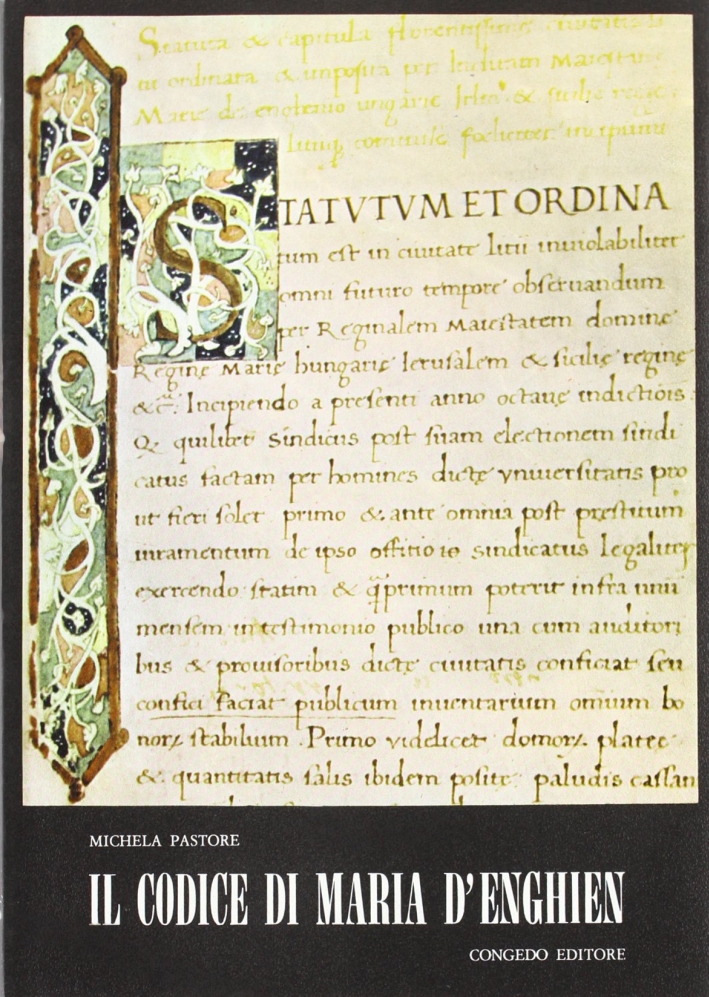 Statuta & capitula florentissime civitatis
ordinata & imposita per Maiestatem
Marie de ungarie & sicilie
comitisse feliciter incipiunt
STATVTVM ET ORDINA
tum est in ciuitate litii inuiolabiliter
omni futuro tempore obseruandum
per Reginalem Maiestatem domine
Regine Marie hungarie Ierusalem & sicilie regine
Incipiendo a presenti anno octaue indictiois
Q quilibet sindicus post suam electionem sindi
catus factam per homines dicte vniuersitatis pro
ut fieri solet primo & ante omnia post prestitum
iuramentum de ipso offitio sindicatus legaliter
exercendo statim & primum poterit infra unu
mensem in testimonio publico una cum auditori
bus & prouisoribus dicte ciuitatis conficiat seu
confici faciat publicum inuentarium omium bo
norꝝ stabilium . Primo videlicet domorꝝ platee
& quantitatis salis ibidem posite paludis cassan
MICHELA PASTORE
IL CODICE DI MARIA D'ENGHIEN
CONGEDO EDITORE